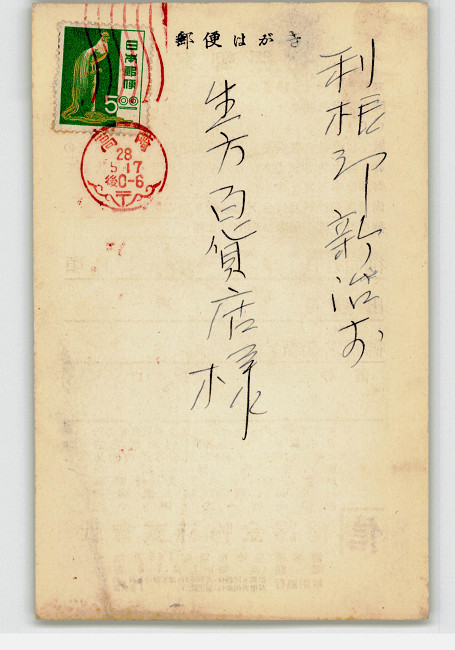 郵便はがき
日本郵便
5.00
高崎
28
5.17
後0-6
利根郡新治村
生方百貨店様